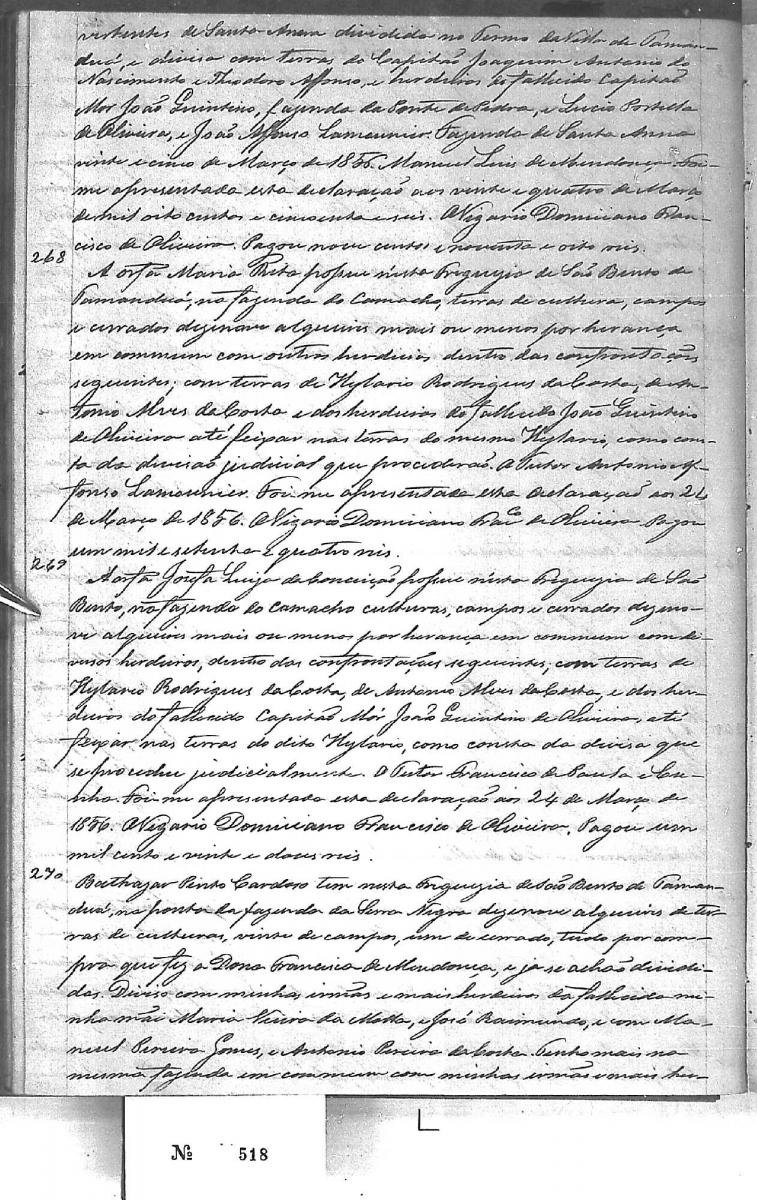 vertentes de Santa Anna dividida no Termo da Villa de Taman-
duá, e divisa com terras do Capitão Joaquim Antonio do
Nascimento e Theodoro Affonso, e herdeiros do fallecido Capitão
Mor João Quintino, fazenda da Ponte de Pedra, e Lucio Portella
de Oliveira, e João Affonso Lamounier. Fazenda de Santa Anna
vinte e cinco de Março de 1856. Manuel Luis de Mendonça. Foi-
me apresentada esta declaração aos vinte e quatro de Março
de mil oito centos e cincoenta e seis. O Vigario Domiciano Fran-
cisco de Oliveira. Pagou nove centos e noventa e oito reis.
268
A orfã Maria Rita possue nesta Freguezia de São Bento de
Tamanduá, na fazenda do Camacho, terras de cultura, campos
e cerrados dezenove alqueires mais ou menos por herança
em commum com outros herdeiros dentro das confrontações
seguintes; com terras de Hylario Rodrigues da Costa, de An-
tonio Alves da Costa e dos herdeiros do fallecido João Quintino
de Oliveira até feixar nas terras do mesmo Hylario, como cons-
ta da divisão judicial que procederão. O Tutor Antonio Af-
fonso Lamounier. Foi me apresentada esta declaração aos 24
de Março de 1856. O Vigario Domiciano Franco de Oliveira Pagou
um mil e setenta e quatro reis.
269
A orfã Josefa Luiza da Conceição possue nesta Freguezia de São
Bento, na fazenda do Camacho culturas, campos e cerrados dezeno-
ve alqueires mais ou menos por herança em commum com di-
versos herdeiros, dentro das confrontações seguintes; com terras de
Hylario Rodrigues da Costa, de Antonio Alves da Costa, e dos her-
deiros do fallecido Capitão Mór João Quintino de Oliveira, até
feixar nas terras do dito Hylario, como consta da divisa que
se procedeu judicialmente. O Tutor Francisco de Paula e Cu-
nha. Foi me apresentada esta declaração aos 24 de Março de
1856. O Vigario Domiciano Francisco de Oliveira. Pagou um
mil cento e vinte e dous reis.
270
Balthazar Pinto Cardoso tem nesta Freguezia de São Bento de Taman-
duá, na ponta da fazenda da Serra Negra dezenove alqueires de ter-
ras de culturas, vinte de campos, um de cerrado, tudo por com-
pra que fiz a Dona Francisca de Mendonça, e ja se achão dividi-
das. Diviso com minhas irmãs e mais herdeiros da fallecida mi-
nha mãi Maria Vieira da Motta, e José Raimundo, e com Ma-
noel Pereira Gomes, e Antonio Pereira da Costa. Tenho mais na
mesma fazenda em commum com minhas irmãs e mais her-
№ 518